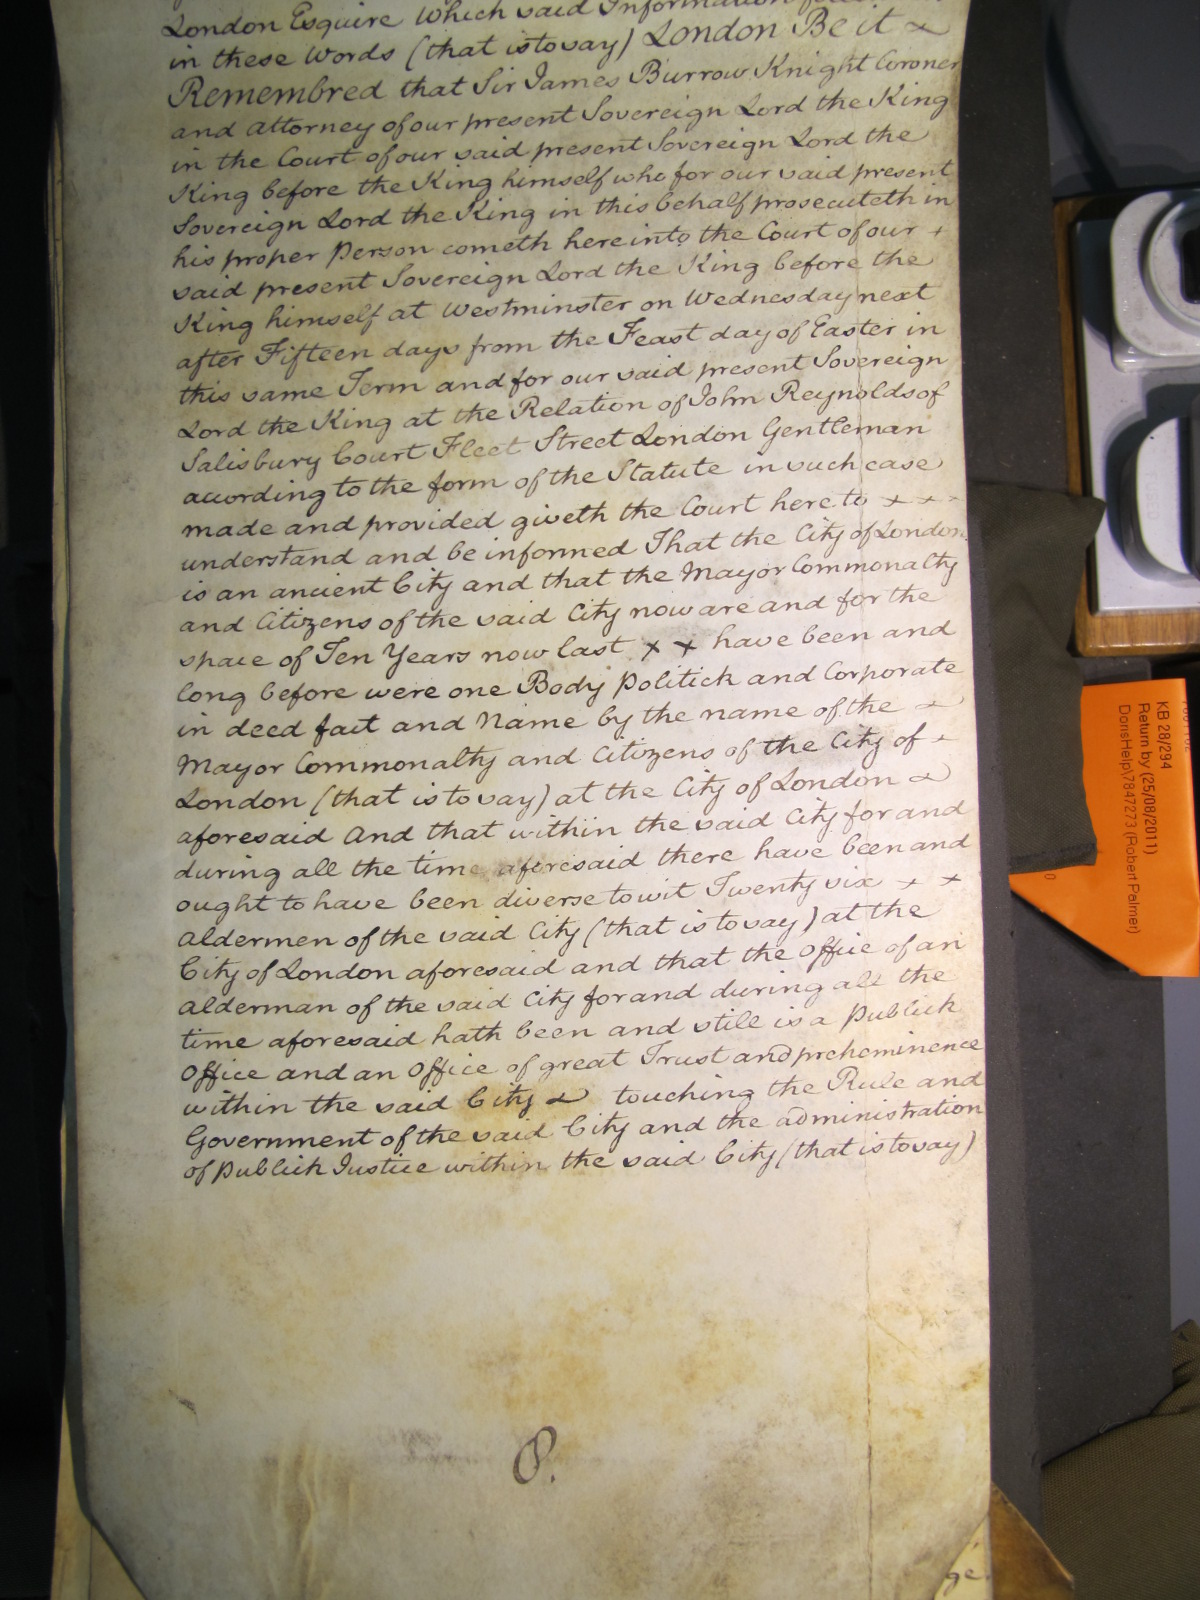 London Esquire Which said Information
in these Words (that is to say) London Be it
Remembred that Sir James Burrow Knight Coroner
and attorney of our present Sovereign Lord the King
in the Court of our said present Sovereign Lord the
King before the King himself who for our said present
Sovereign Lord the King in this behalf prosecuteth in
his proper Person cometh here into the Court of our +
said present Sovereign Lord the King before the
King himself at Westminster on Wednesday next
after Fifteen days from the Feast day of Easter in
this same Term and for our said present Sovereign
Lord the King at the Relation of John Reynolds of
Salisbury Court Fleet Street London Gentleman
according to the form of the Statute in such case
made and provided giveth the Court here to x x x
understand and be informed That the City of London
is an ancient City and that the Mayor Commonalty
and Citizens of the said City now are and for the
space of Ten Years now last x x have been and
long before were one Body Politick and Corporate
in deed fact and Name by the name of the
Mayor Commonalty and Citizens of the City of
London (that is to say) at the City of London
aforesaid And that within the said City for and
during all the time aforesaid there have been and
ought to have been diverse to wit Twenty six x x
Aldermen of the said City (that is to say) at the
City of London aforesaid and that the Office of an
alderman of the said City for and during all the
time aforesaid hath been and still is a Publick
Office and an Office of great Trust and preheminence
within the said City touching the Rule and
Government of the said City and the administration
of Publick Justice within the said City (that is to say)
8.
ge.
KB 28/294
Return by (25/08/2011)
DorisHelp\7847273 (Robert Palmer)